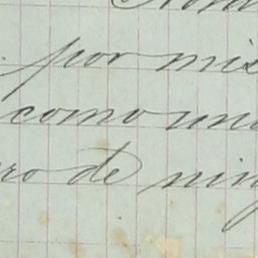 por mis
como un
ro de nin